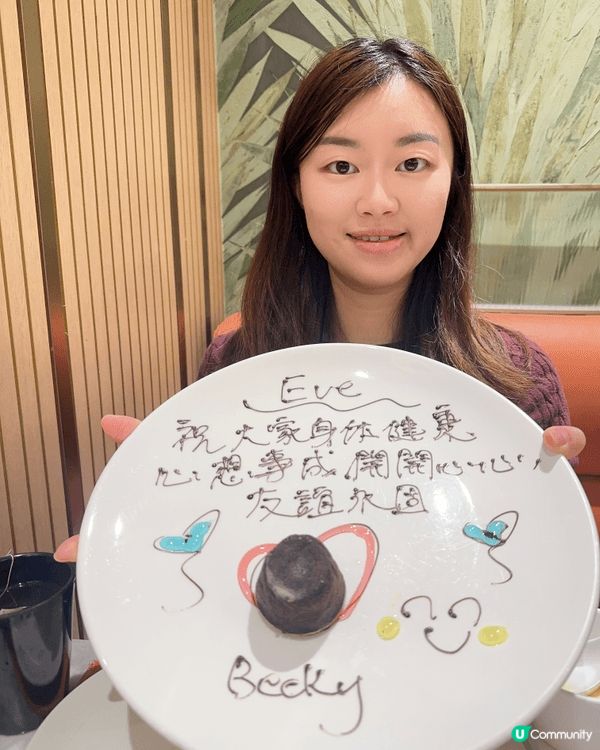 Eve
祝大家身体健康
心想事成開開心心,
友誼永固
Becky
U Community